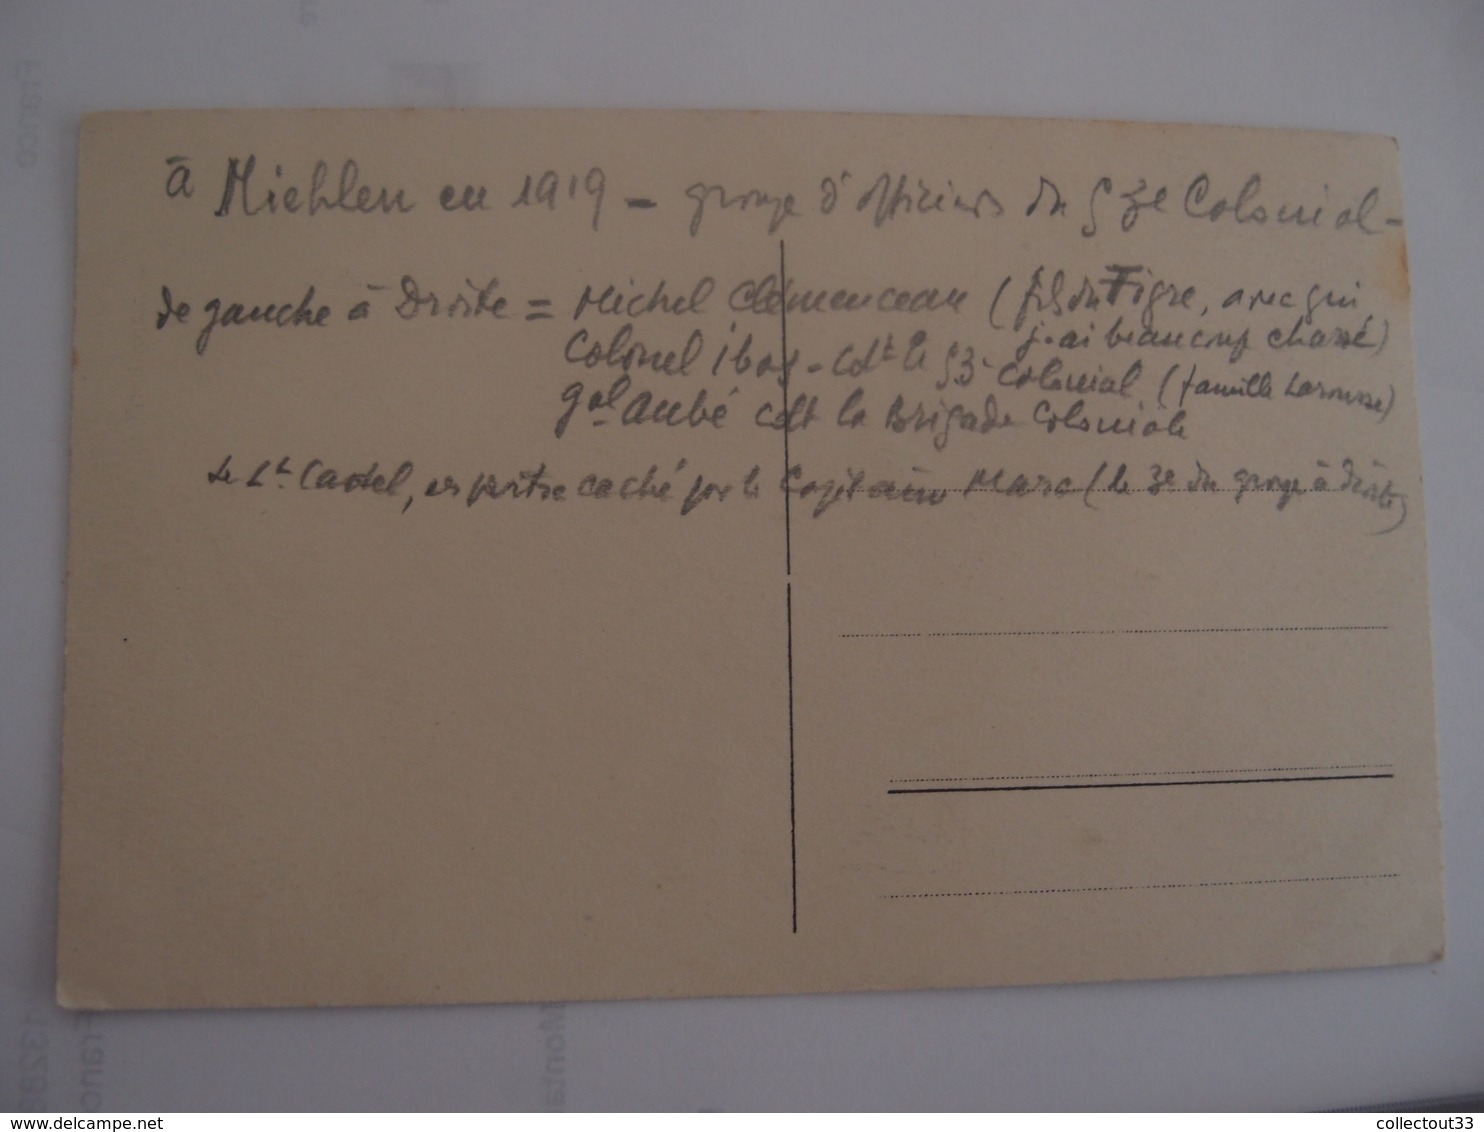 à Miehlen en 1919 - groupe d'officiers du 53e Colonial -
de gauche à Droite = Michel Clémenceau (fils du Tigre, avec qui
j'ai beaucoup chassé)
Colonel Ibos - Cdt le 53e Colonial (famille Larousse)
gal Aubé cdt la Brigade Coloniale
Le Lt Castel, est peut être caché par le Capitaine Marc (le 3e du groupe à droite)
Franco
Franc
1328
Monta
www.delcampe.net
collectout33